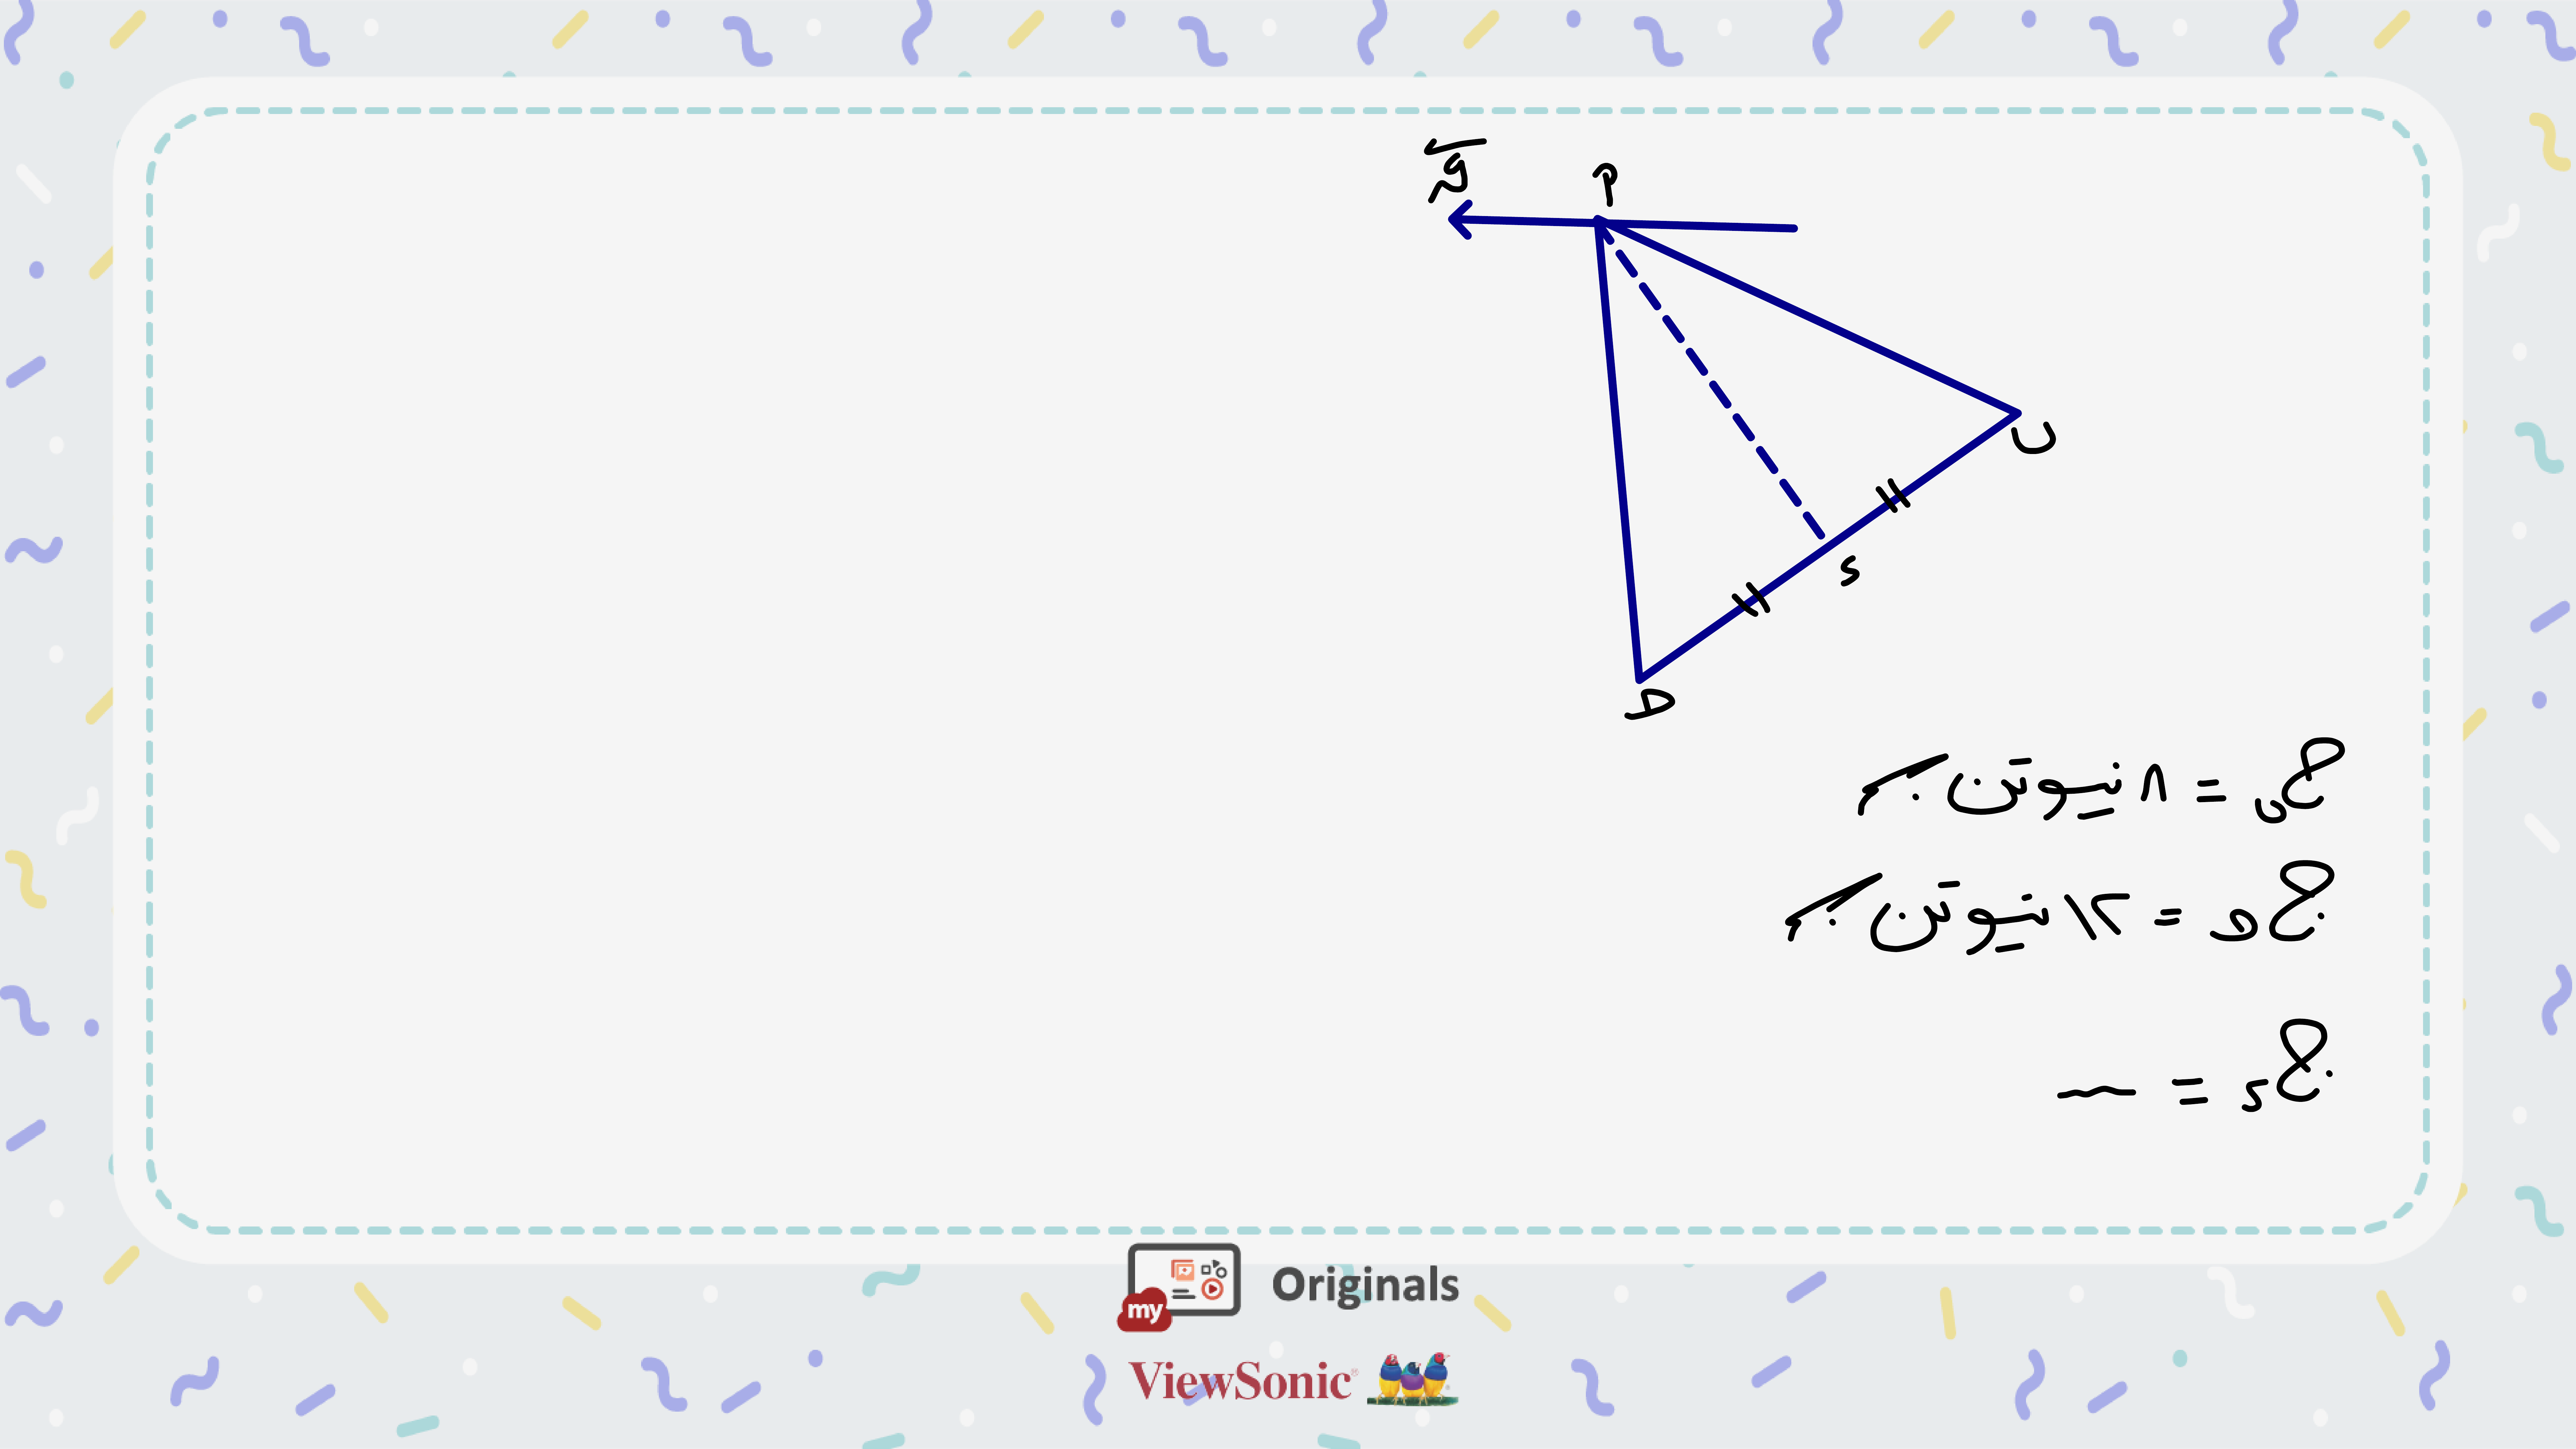 ق
م
ب
ء
هـ
ج ب = ٨ نيوتن . م
ج هـ = ١٢ نيوتن . م
ج ء = ـــ
my Originals
ViewSonic